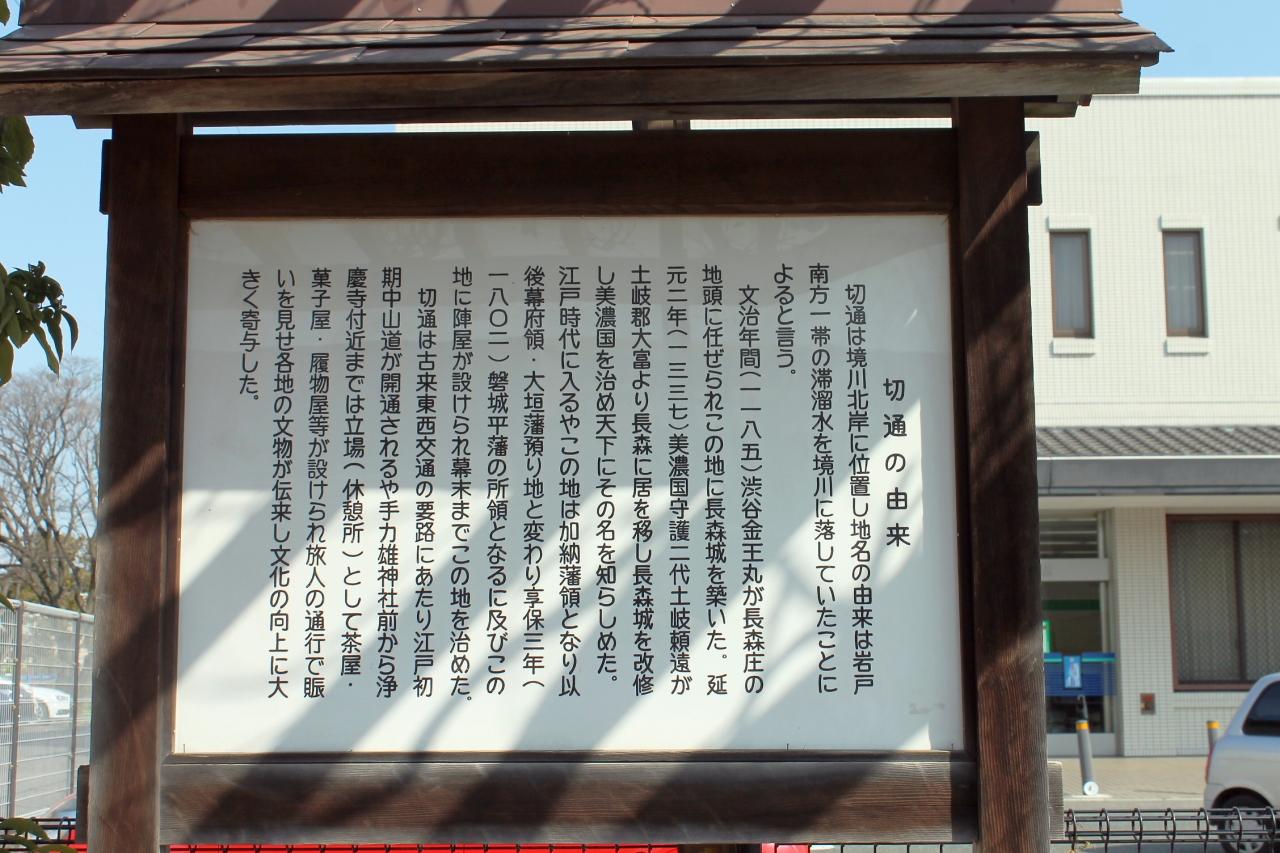 切通の由来
切通は境川北岸に位置し地名の由来は岩戸
南方一帯の滞溜水を境川に落していたことに
よると言う。
文治年間(一一八五)渋谷金王丸が長森庄の
地頭に任ぜられこの地に長森城を築いた。延
元二年(一三三七)美濃国守護二代土岐頼遠が
土岐郡大富より長森に居を移し長森城を改修
し美濃国を治め天下にその名を知らしめた。
江戸時代に入るやこの地は加納藩領となり以
後幕府領・大垣藩預り地と変わり享保三年(
一八〇二)磐城平藩の所領となるに及びこの
地に陣屋が設けられ幕末までこの地を治めた。
切通は古来東西交通の要路にあたり江戸初
期中山道が開通されるや手力雄神社前から浄
慶寺付近までは立場(休憩所)として茶屋・
菓子屋・履物屋等が設けられ旅人の通行で賑
いを見せ各地の文物が伝来し文化の向上に大
きく寄与した。